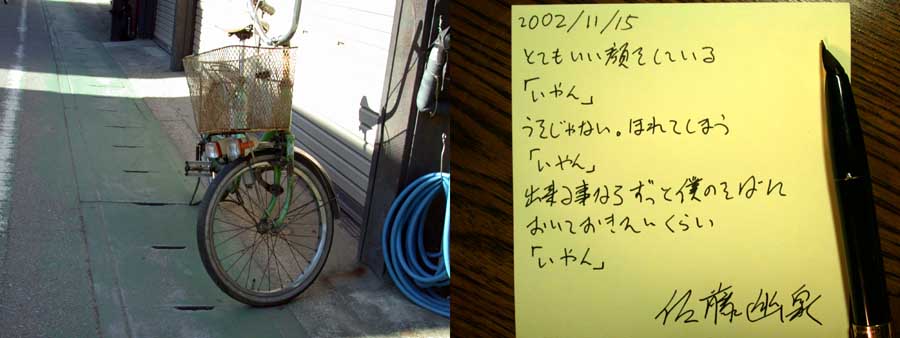 2002/11/15
とてもいい顔をしている
「いやん」
うそじゃない。ほれてしまう
「いやん」
出来る事ならずっと僕のそばに
おいておきたいくらい
「いやん」
佐藤幽泉